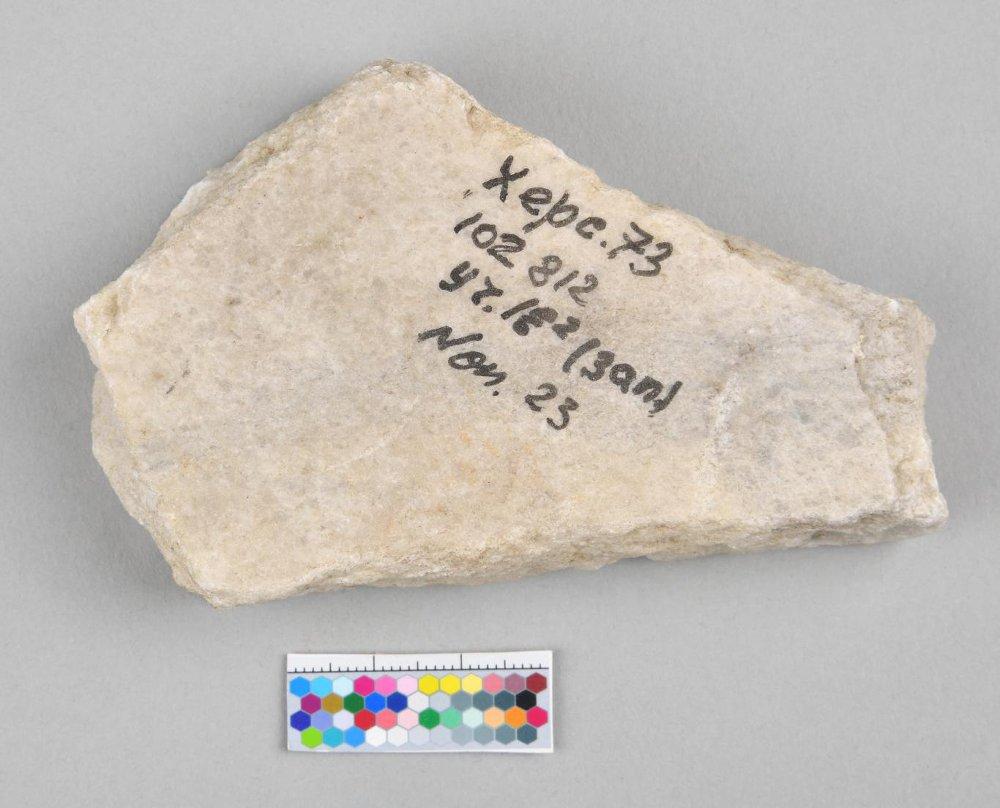 Херс. 73
102 812
уч. 1б² (зап)
Пом. 23